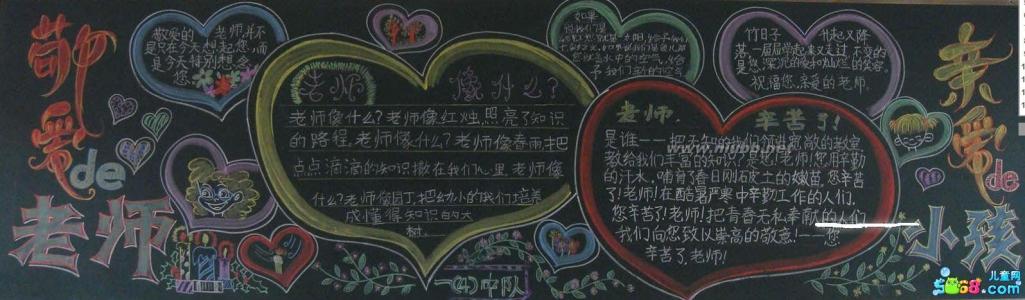 敬爱
de
老师
敬爱的 老师并不
是只在今天想起您,而
是今天特别想念
您
老师 像什么?
老师像什么?老师像红烛,照亮了知识
的路程,老师像什么?老师像春雨,把
点点滴滴的知识撒在我们心里,老师像
什么?老师像园丁,把幼小的我们培养
成懂得知识的大
树。
如果
给予我们
竹日子 书起又阵
祝福您,亲爱的老师。
老师. 辛苦了!
是谁——把无知的我们领进宽敞的教室,
教给我们丰富的知识?是您!老师!您用辛勤
的汗水,哺育了春日刚破土的嫩苗,您辛苦
了!老师!在酷暑严寒中辛勤工作的人们,
您辛苦了!老师!把青春无私奉献的人们
我们向您致以崇高的敬意!——您
辛苦了,老师!
一(4)中队
亲爱
de
小孩
儿童网
5068.com